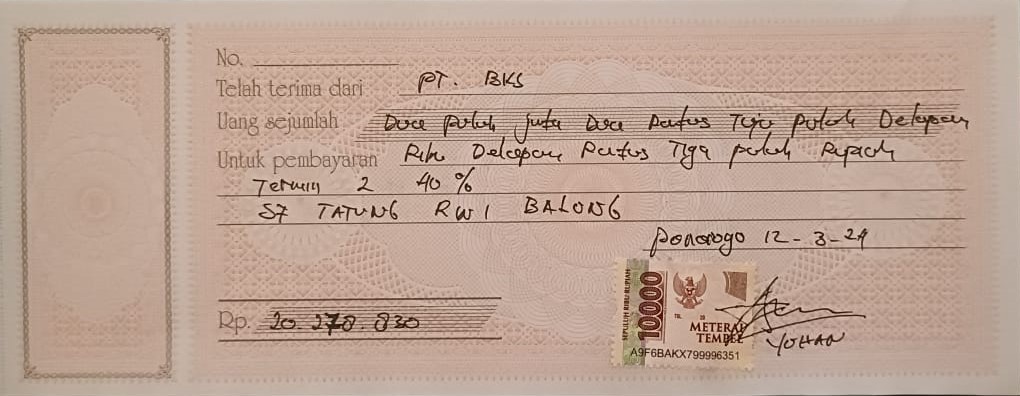 No.
Telah terima dari PT. BKS
Uang sejumlah Dua puluh juta Dua Ratus Tuju puluh Delapan
Untuk pembayaran Ribu Delapan Ratus Tiga puluh Rupiah
Termin 2 40 %
S7 TATUNG RW 1 BALONG
Ponorogo 12 - 3 - 24
Rp. 20.278.830
SEPULUH RIBU RUPIAH
10000
TGL. 20
METERAI
TEMPEL
A9F6BAKX799996351
YOHAN